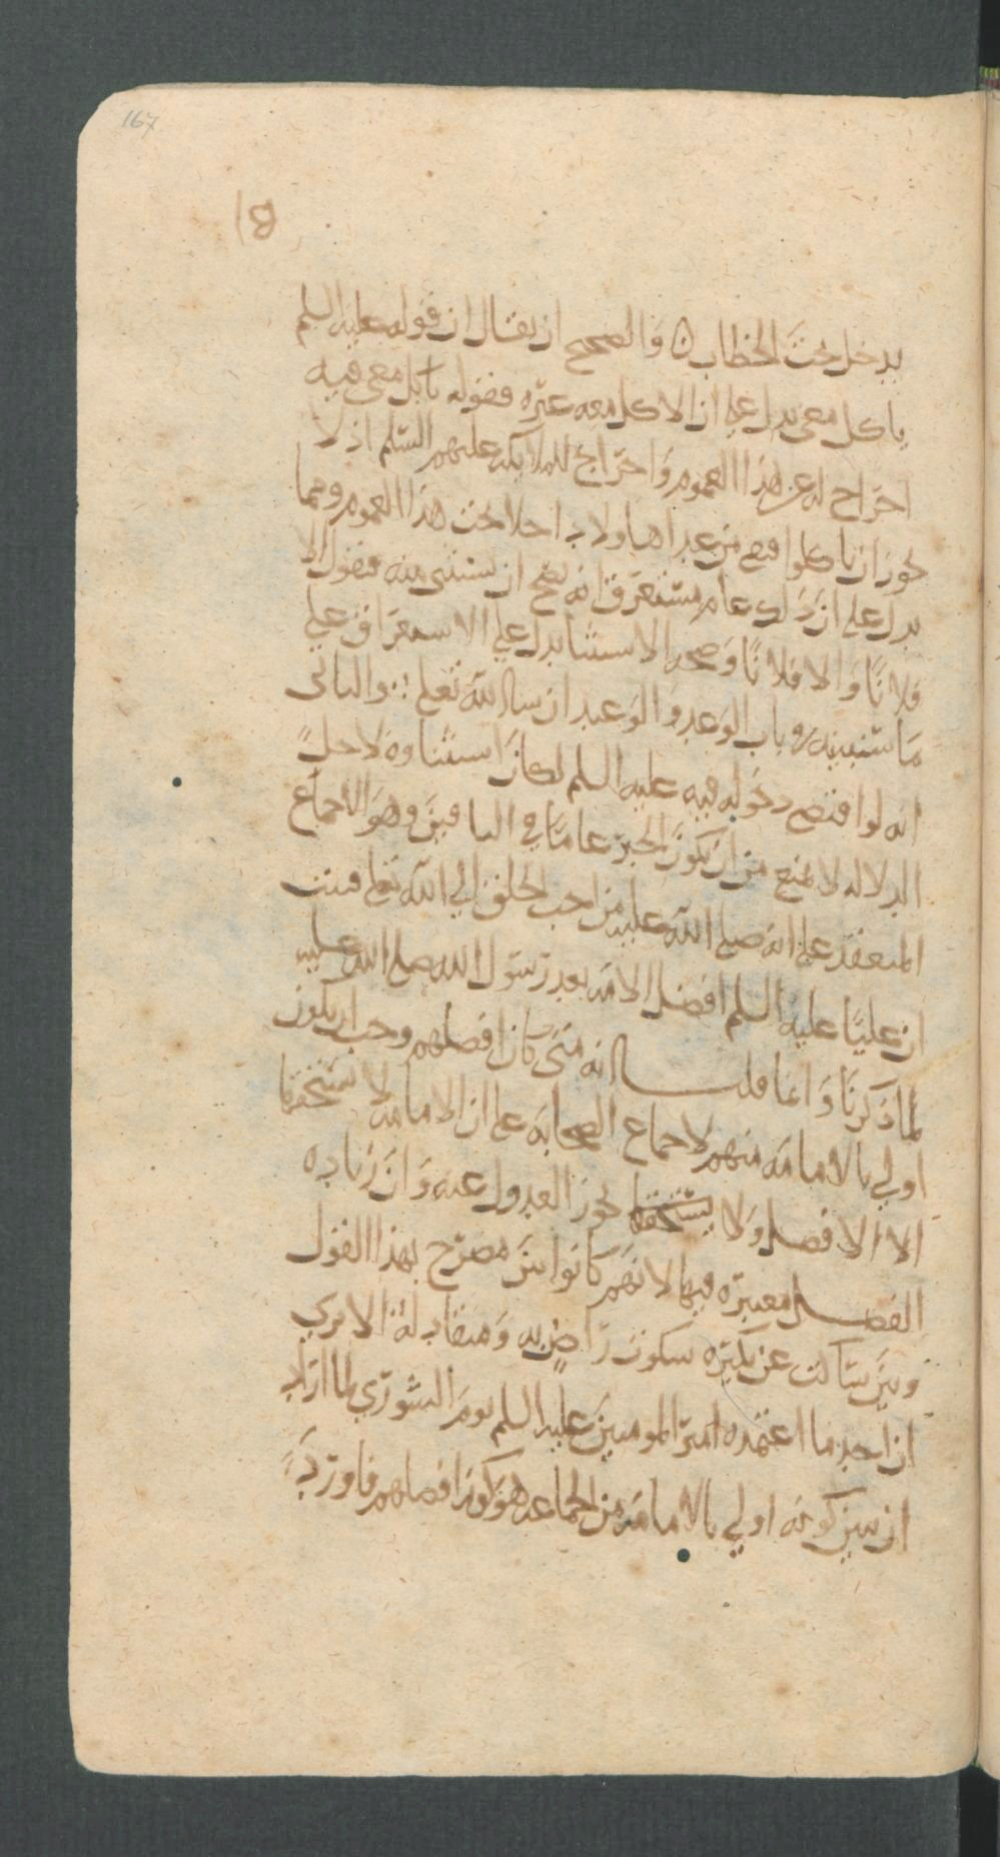 167
يدخل تحت الخطاب ٥ والصحيح ان يقال ان قوله عليه السلم
ياكل معي يدل على ان الاكل معه غيره فقوله ياكل معي فيه
اخراج له عن هذا العموم واخراج للملايكه عليهم السلم اذ لا
يجوز ان ياكلوا فهم من عداها ولا داخلا تحت هذا العموم ومما
يدل على ان ذلك عام مستغرق انه يصح ان يستثنى منه فيقول الا
فلانا والا فلانا وصحه الاستثنا يدل على الاستغراق على
ما سنبينه في باب الوعد والوعيد ان سا الله تعلى والثاني
انه لو اقتضى دخوله فيه عليه السلم لكان استثناوه لاجل
الدلاله لا يمنع من ان يكون الخبر عاما في الباقين وهو الاجماع
المنعقد على انه صلى الله عليه من احب الخلق الى الله تعلى فثبت
ان عليا عليه السلم افضل الامه بعد رسول الله صلى الله عليه
لما ذكرنا وانما قلنا انه متى كان افضلهم وجب ان يكون
اولى بالامامه منهم لاجماع الصحابه على ان الامامه لا يستحقها
الا الافضل ولا يجوز العدول عنه وان زياده
الفضل معتبره فيها لانهم كانوا بين مصرح بهذا القول
وبين ساكت عن نكيره سكوت راض به ومتقابله الا ترى
ان احد ما اعتمده امير المومنين عليه السلم يوم الشورى لما اراد
ان يبين كونه اولى بالامامه من الجماعه هو كونه افضلهم فاورد